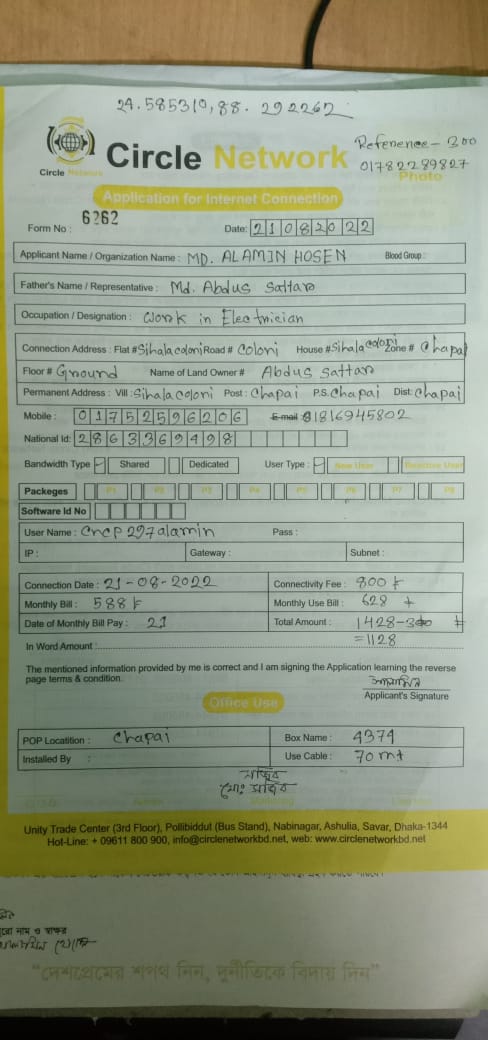 24.585310,88.292262
Reference - 300
01782289827
Circle Network
Circle Network
Photo
Application for Internet Connection
Form No : 6262
Date: 21082022
Applicant Name / Organization Name : MD. ALAMIN HOSEN Blood Group :
Father's Name / Representative : Md. Abdus Sattar
Occupation / Designation : Work in Electrician
Connection Address : Flat # Sihala coloni Road # Coloni House # Sihala coloni Zone # Chapai
Floor # Ground Name of Land Owner # Abdus Sattar
Permanent Address : Vill : Sihala coloni Post : Chapai P.S. Chapai Dist: Chapai
Mobile : 01752596206 E-mail 01816945802
National Id: 2863369498
Bandwidth Type Shared Dedicated User Type : New User Reactive User
Packeges P1 P2 P3 P4 P5 P6 P7 P8
Software Id No
User Name : cncp297alamin Pass :
IP : Gateway : Subnet :
Connection Date : 21-08-2022 Connectivity Fee : 800 ৳
Monthly Bill : 588 ৳ Monthly Use Bill : 628 ৳
Date of Monthly Bill Pay : 21 Total Amount : 1428-300 ৳
=1128
In Word Amount :
The mentioned information provided by me is correct and I am signing the Application learning the reverse
page terms & condition.
আলামিন
Applicant's Signature
Office Use
POP Locatition : Chapai Box Name : 4374
Installed By : Use Cable : 70 mt
সাব্বির
মোঃ সাব্বির
Unity Trade Center (3rd Floor), Pollibiddut (Bus Stand), Nabinagar, Ashulia, Savar, Dhaka-1344
Hot-Line: + 09611 800 900, info@circlenetworkbd.net, web: www.circlenetworkbd.net
নাম ও স্বাক্ষর
“দেশপ্রেমের শপথ নিন, দুর্নীতিকে বিদায় দিন”